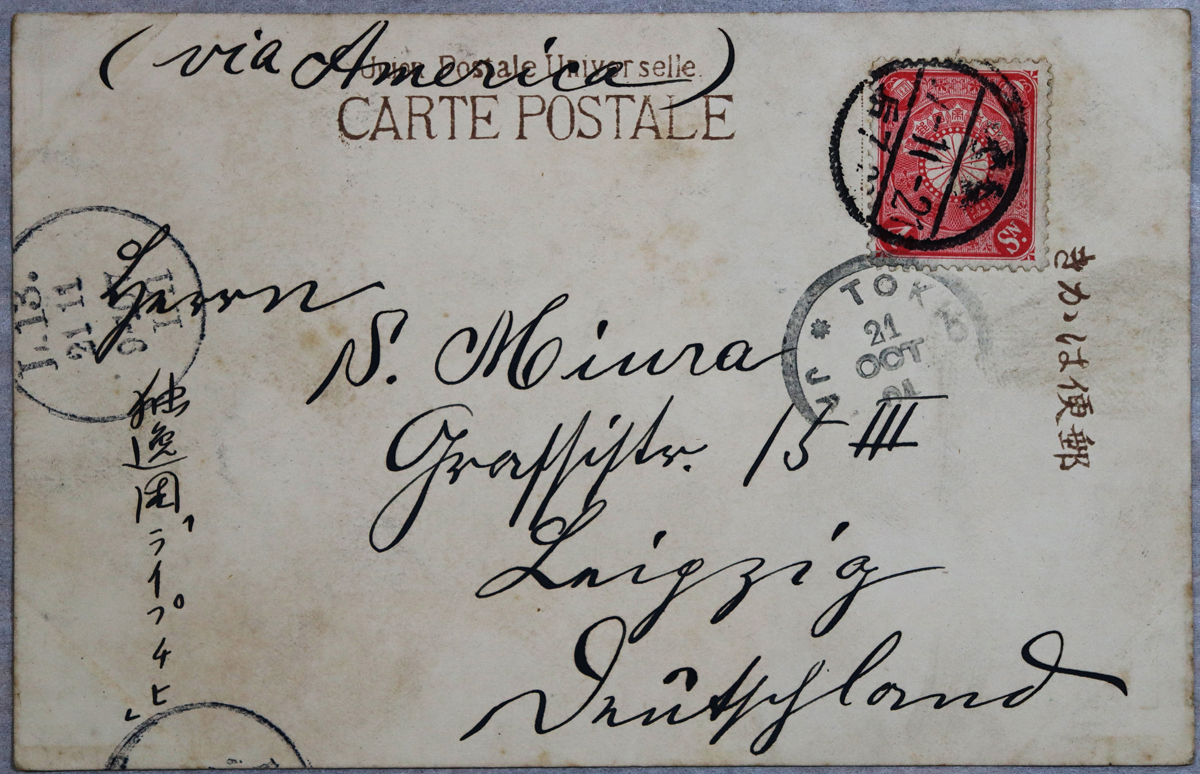 (via America)
Union Postale Universelle
CARTE POSTALE
SN.
TOKIO
21
OCT
きかは便郵
L.13.
21 11
Herrn
S. Miura
Grassistr. 15 III
Leipzig
Deutschland
独逸国「ライプチヒ」